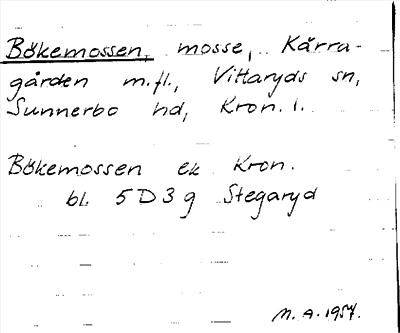 Bökemossen, mosse, Kärra-
gården m.fl., Vittaryds sn,
Sunnerbo hd, Kron. l.
Bökemossen ek Kron.
bl. 5D3g Stegaryd
M.A. 1954.